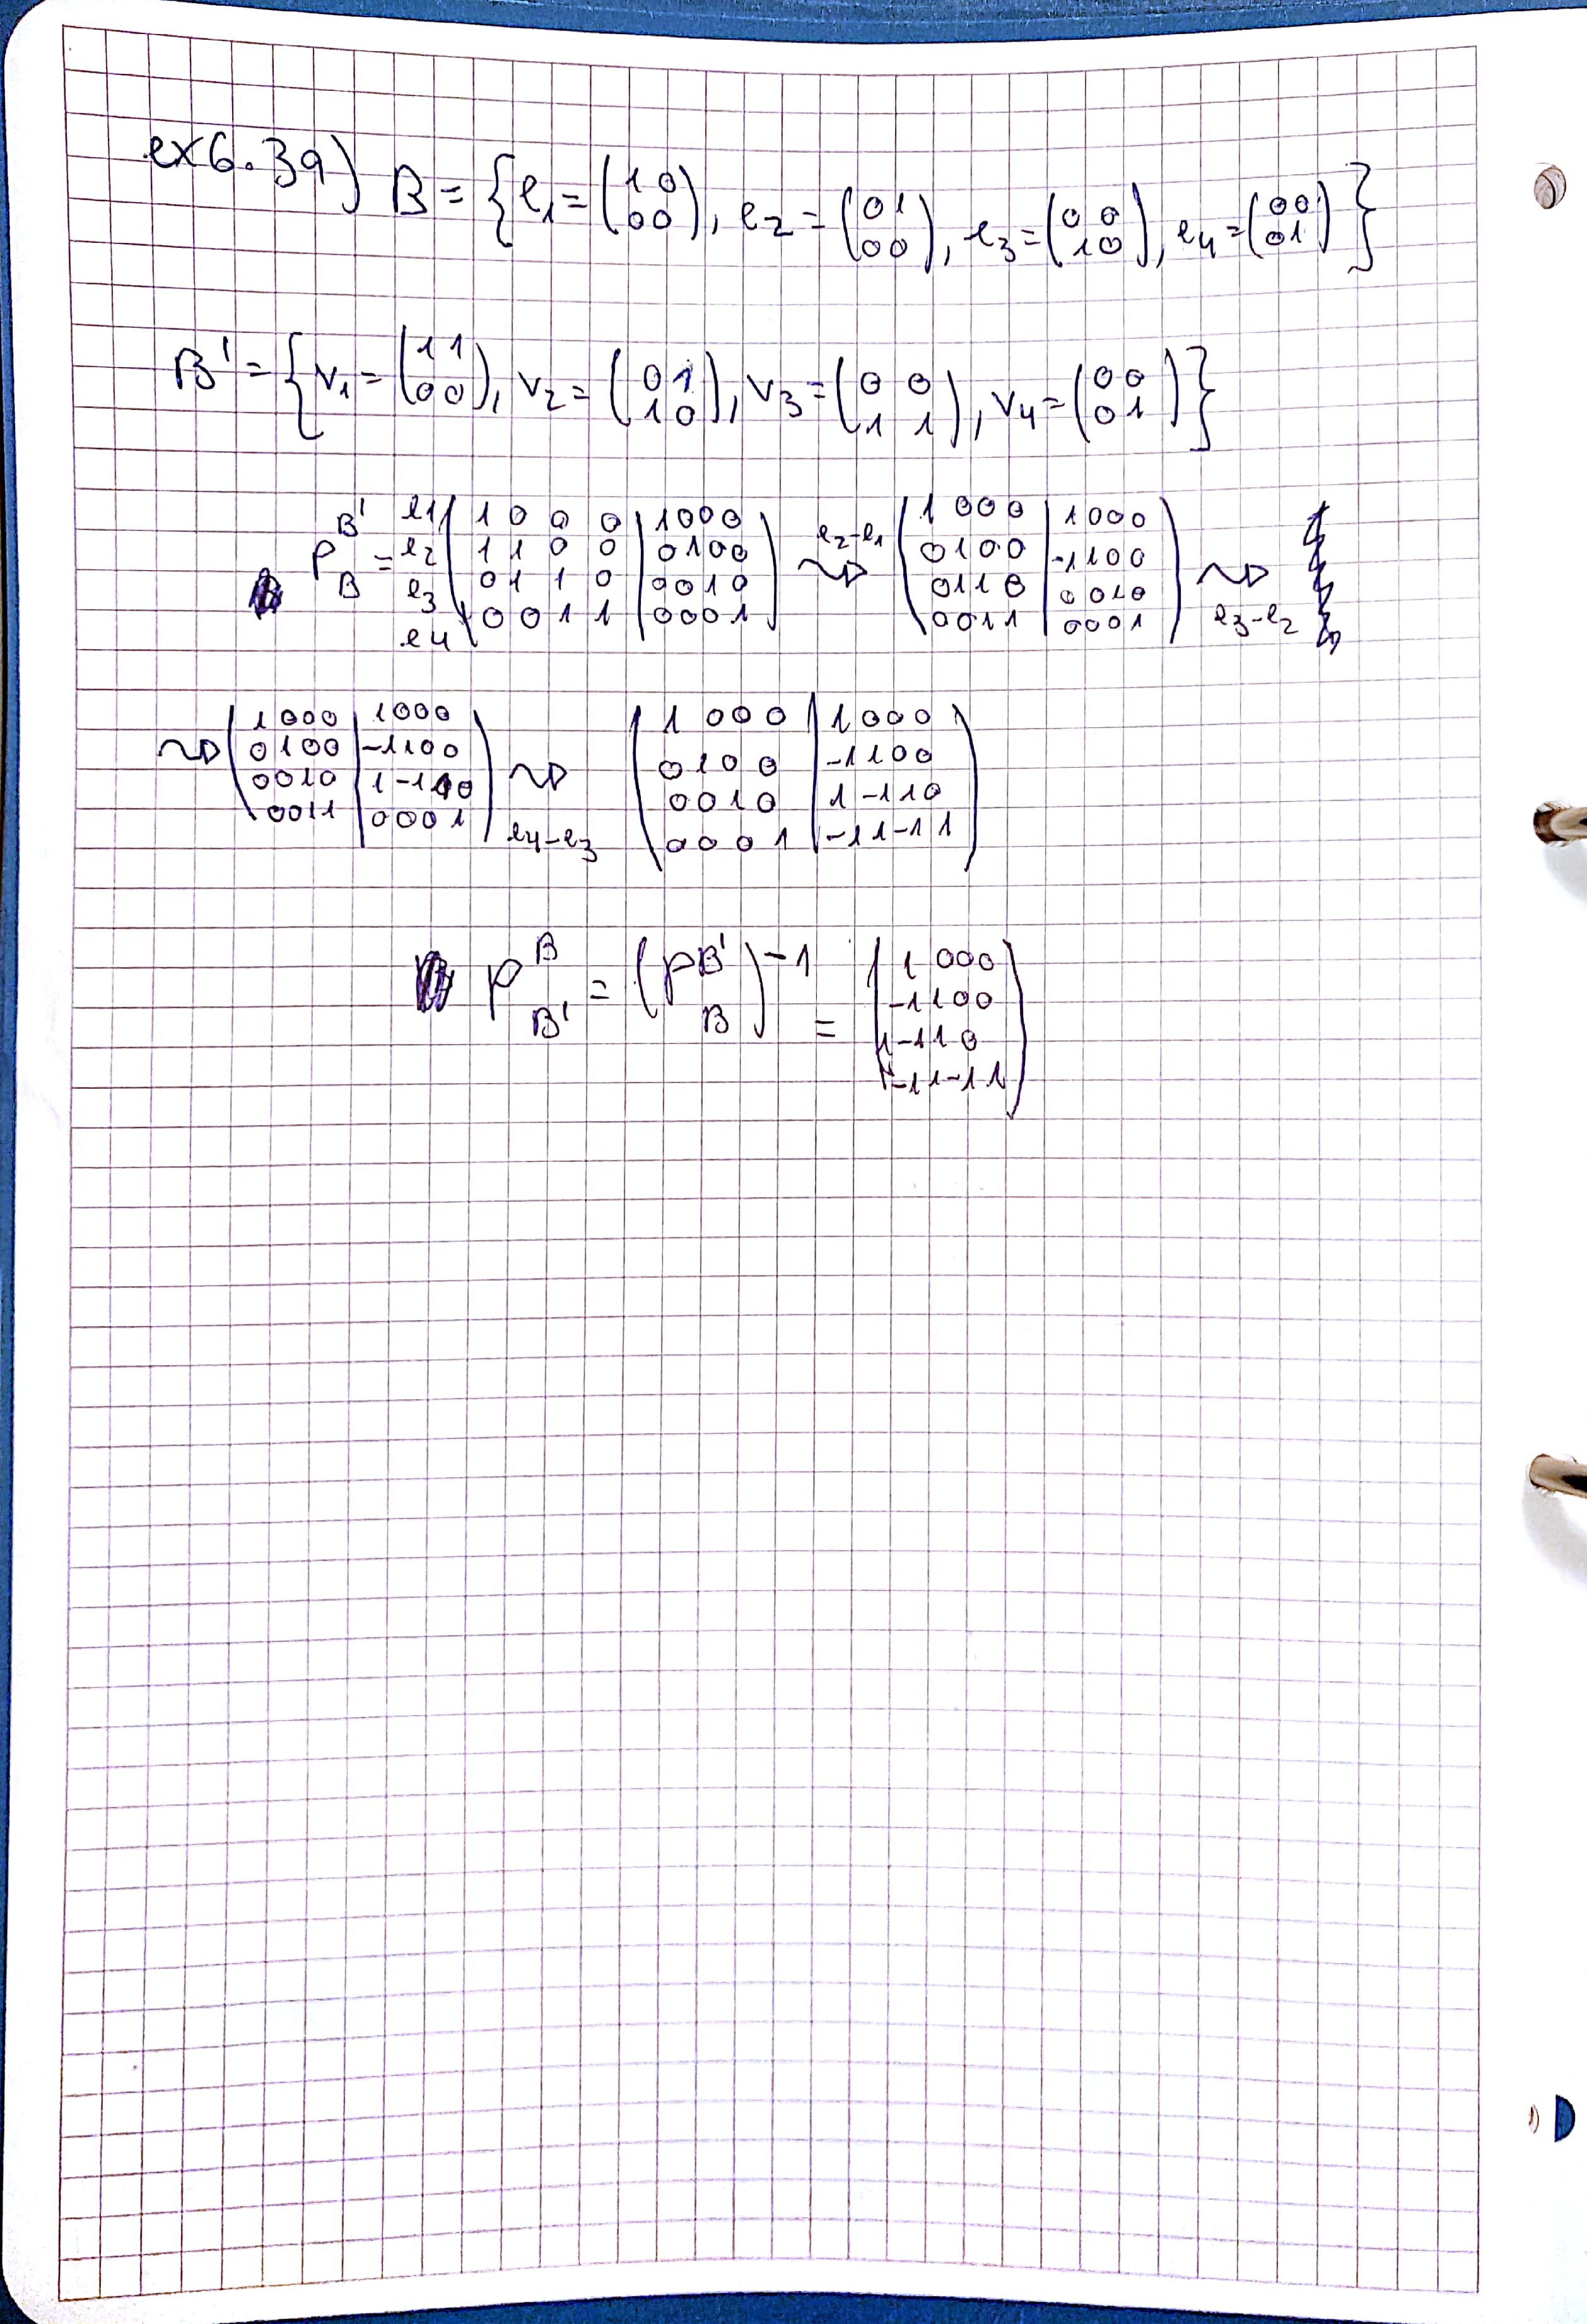 ex6.39) B = { e1 = (1 0 / 0 0), e2 = (0 1 / 0 0), e3 = (0 0 / 1 0), e4 = (0 0 / 0 1) }
B' = { v1 = (1 1 / 0 0), v2 = (0 1 / 1 0), v3 = (0 0 / 1 1), v4 = (0 0 / 0 1) }
P B' B = e1 e2 e3 e4 (1 0 0 0 | 1 0 0 0 / 1 1 0 0 | 0 1 0 0 / 0 1 1 0 | 0 0 1 0 / 0 0 1 1 | 0 0 0 1) e2-e1 ⇝ (1 0 0 0 | 1 0 0 0 / 0 1 0 0 | -1 1 0 0 / 0 1 1 0 | 0 0 1 0 / 0 0 1 1 | 0 0 0 1) ⇝ e3-e2
⇝ (1 0 0 0 | 1 0 0 0 / 0 1 0 0 | -1 1 0 0 / 0 0 1 0 | 1 -1 1 0 / 0 0 1 1 | 0 0 0 1) ⇝ e4-e3 (1 0 0 0 | 1 0 0 0 / 0 1 0 0 | -1 1 0 0 / 0 0 1 0 | 1 -1 1 0 / 0 0 0 1 | -1 1 -1 1)
P B B' = (P B' B)-1 = (1 0 0 0 / -1 1 0 0 / 1 -1 1 0 / -1 1 -1 1)